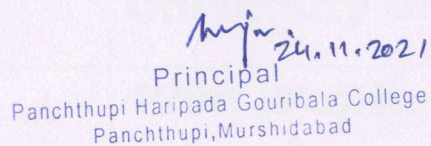 24.11.2021
Principal
Panchthupi Haripada Gouribala College
Panchthupi,Murshidabad